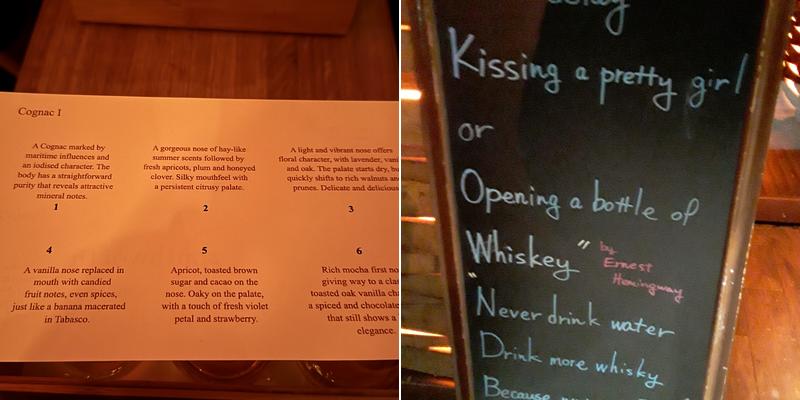 Cognac I
A Cognac marked by
maritime influences and
an iodised character. The
body has a straightforward
purity that reveals attractive
mineral notes.
1
A gorgeous nose of hay-like
summer scents followed by
fresh apricots, plum and honeyed
clover. Silky mouthfeel with
a persistent citrusy palate.
2
A light and vibrant nose offers
floral character, with lavender,
and oak. The palate starts dry, bu
quickly shifts to rich walnuts an
prunes. Delicate and delicious
3
4
A vanilla nose replaced in
mouth with candied
fruit notes, even spices,
just like a banana macerated
in Tabasco.
5
Apricot, toasted brown
sugar and cacao on the
nose. Oaky on the palate,
with a touch of fresh violet
petal and strawberry.
6
Rich mocha first no
giving way to a cla
toasted oak vanilla cha
a spiced and chocolate
that still shows a
elegance.
Kissing a pretty girl
or
Opening a bottle of
Whiskey"
by
Ernest
Hemingway
"Never drink water
Drink more whisky
Because